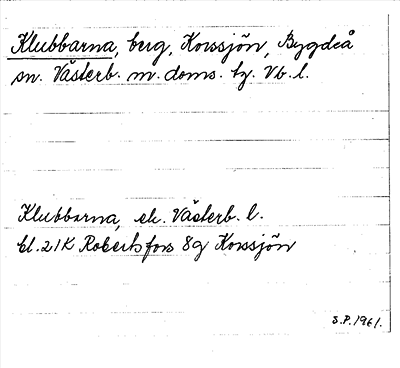 Klubbarna, berg, Korssjön, Bygdeå
sn. Västerb. m. doms. tg. Vb. l.
Klubbarna, ek. Västerb. l.
bl. 21K Robertsfors 8g Korssjön
S.P. 1961.